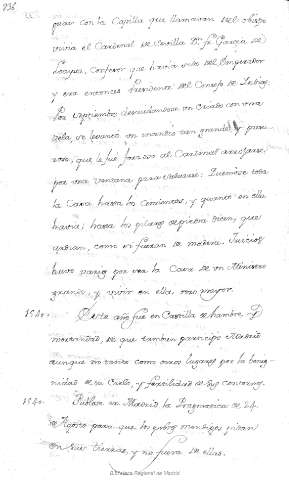 936
pear con la Capilla que llamavan del obispo
vivia el Cardenal de Sevilla Dn. Fr. Garcia de
Loaysa, Confesor que havia sido del Emperador
y era entonces Presidente del Consejo de Indias.
Por septiembre descuidandose un Criado con una
vela, se levantó un incendio tan grande, y pres-
uroso, que le fue forzoso al Cardenal arrojarse
por una ventana para salvarse: Quemóse toda
la Casa hasta los Cimientos, y quanto en ella
havia; hasta los pilares de piedra dicen, que
ardian, como si fueran de madera. Juicios
huvo varios por ser la Casa de un Ministro
grande, y vivir en ella otro mayor.
1540. Este año fue en Castilla de hambre, y
mortandad, de que tambien participó Madrid
aunque no tanto como otros lugares por la benig-
nidad de su Cielo, y fertilidad de sus contornos.
1540. Publicose en Madrid la Pragmatica de 24
de Agosto para que los pobres mendigos pidan
en sus tierras, y no fuera de ellas.
Biblioteca Regional de Madrid